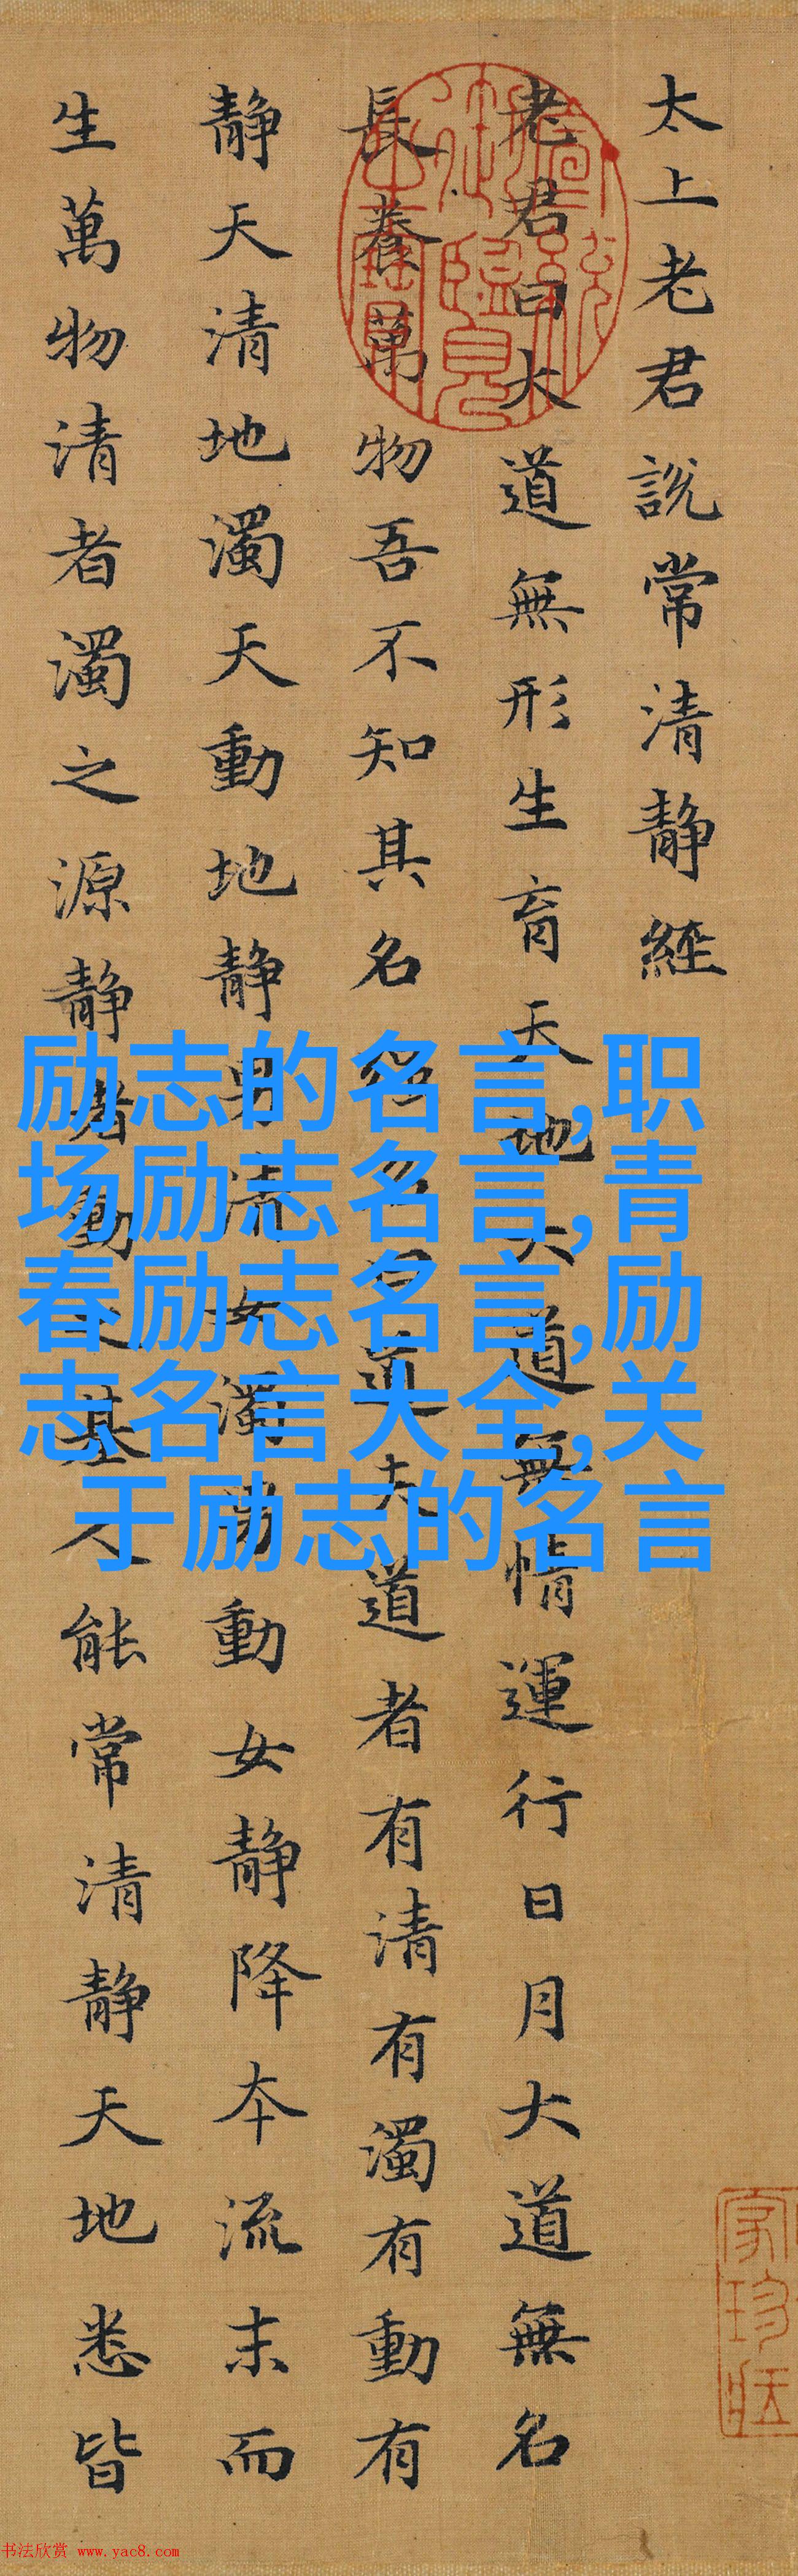 太上老君説常清静經
老君曰大道無形生育天地大道無情運行日月大道無名
長養萬物吾不知其名強名曰道夫道者有清有濁有動有
静天清地濁天動地静男清女濁男動女静降本流末而
生萬物清者濁之源静者動之基人能常清静天地悉皆
励志的名言,职
场励志名言,青
春励志名言,励
志名言大全,关
于励志的名言
书法欣赏 www.yac8.com